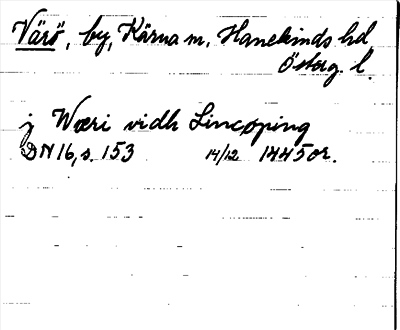 Värö, by, Kärna m, Hanekinds hd
Österg. l.
j Wæri vidh Lincøping
DN 16, s. 153 14/12 1445 or.